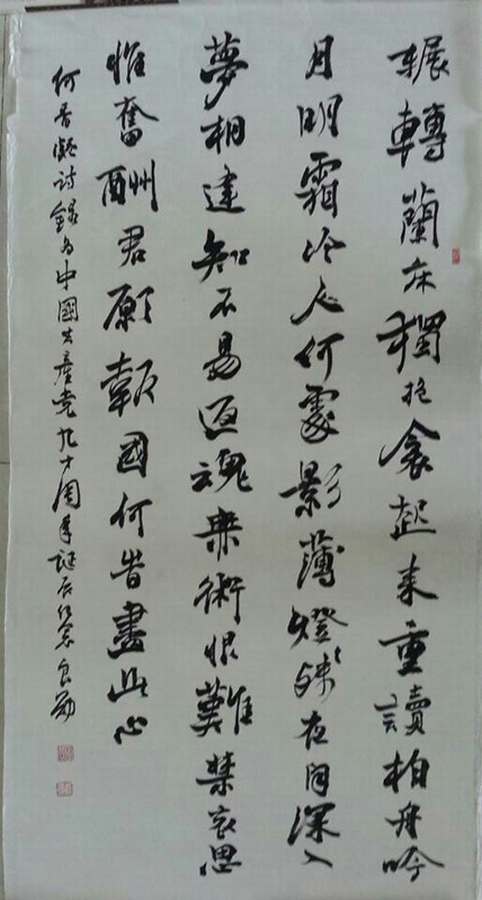 輾轉蘭床獨抱衾起来重讀柏舟吟
月明霜冷人何處影薄燈殘夜自深入
夢相逢知不易返魂無術恨難禁哀思
惟奮酬君願報國何時盡此心
何香凝詩錄為中國共產党九十周年誕辰